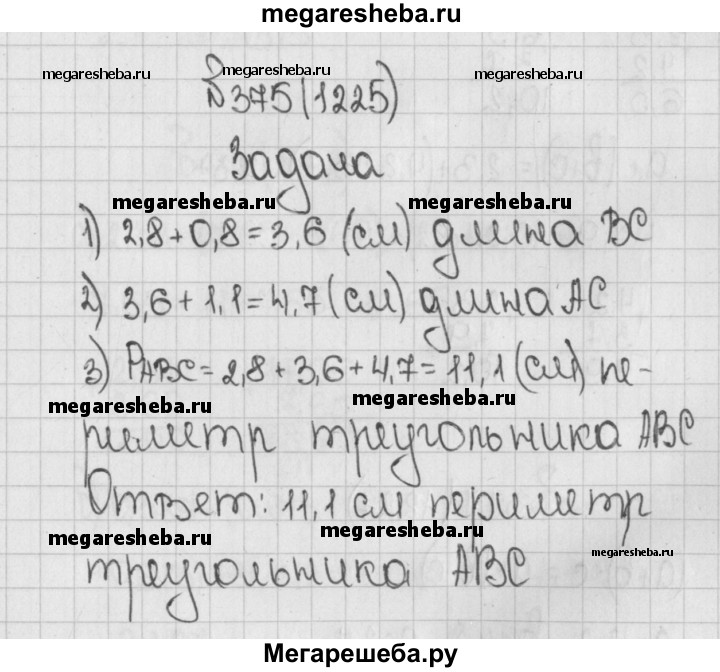 megaresheba.ru
megaresheba.ru megaresheba.ru megaresheba.ru
№375(1225)
Задача
megaresheba.ru megaresheba.ru
1) 2,8+0,8=3,6 (см) длина BC
2) 3,6+1,1=4,7 (см) длина AC
3) PABC=2,8+3,6+4,7=11,1 (см) пе-
megaresheba.ru megaresheba.ru
риметр треугольника ABC
Ответ: 11,1 см периметр
megaresheba.ru megaresheba.ru megaresheba.ru
треугольника ABC
Мегарешеба.ру